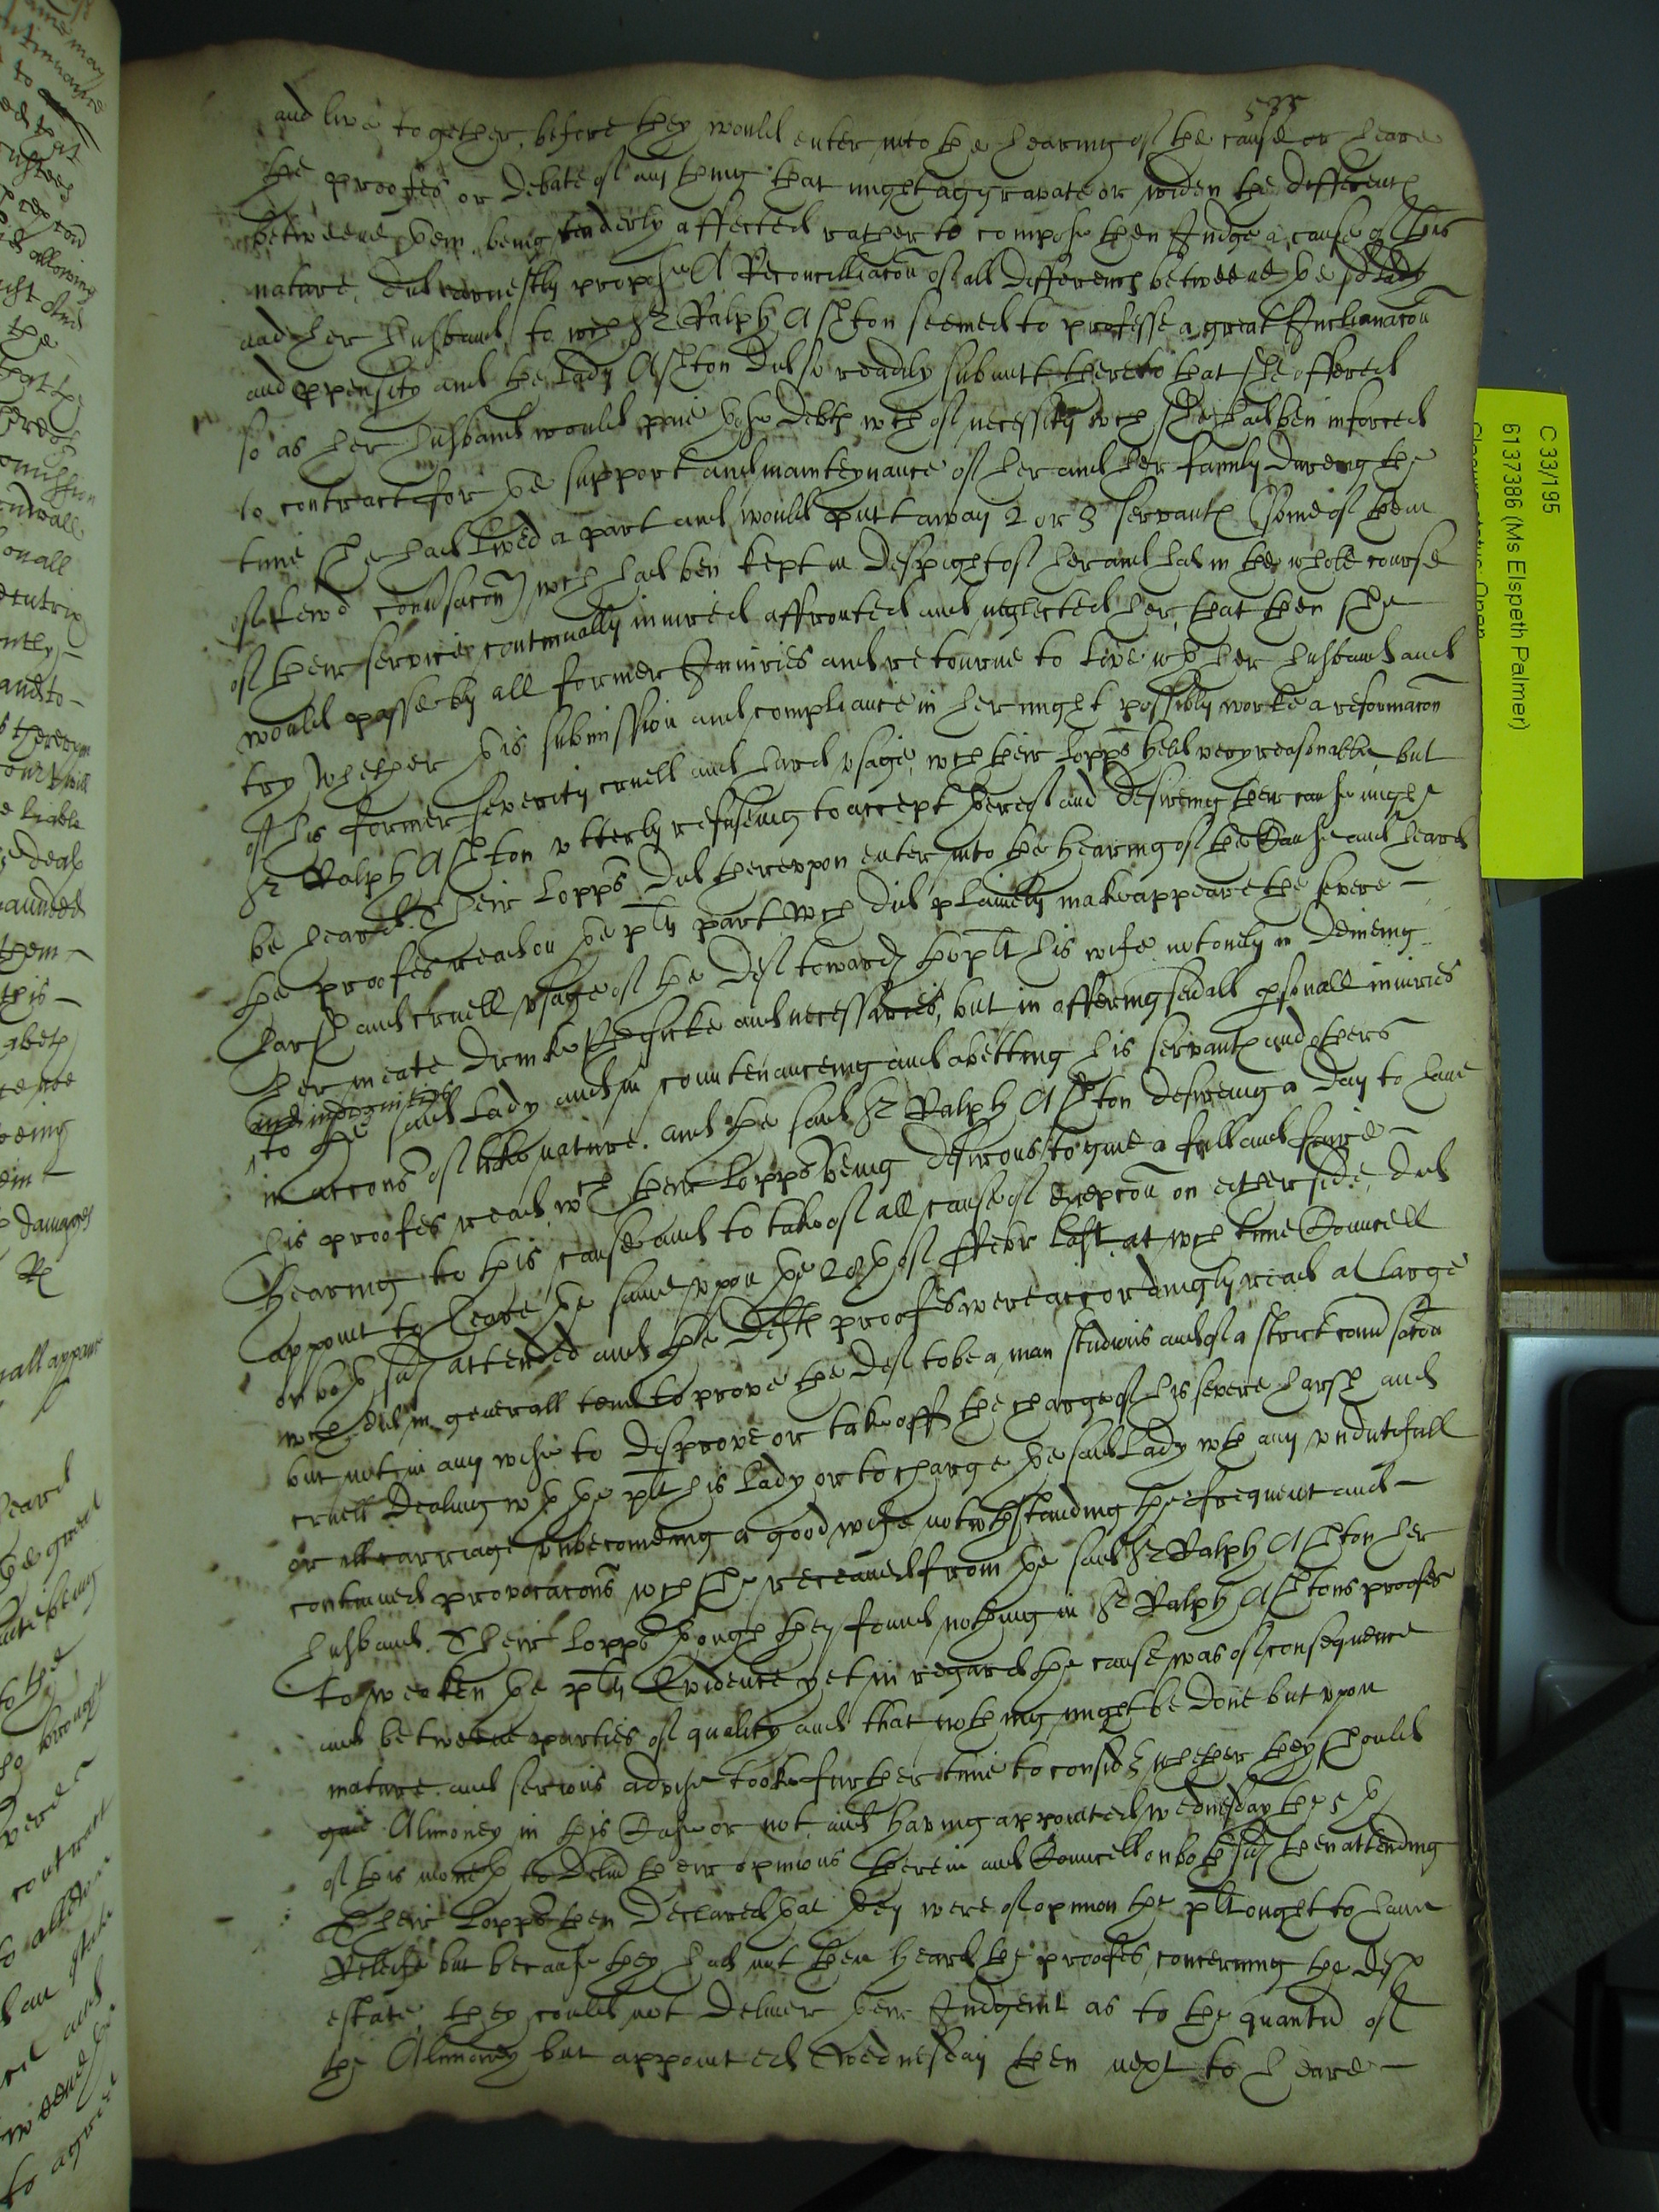 535
and live together, before they would enter into the hearing of the cause or heare
the proofes or debate of any thing that might aggravate or widen the differences
betweene them being tenderly affected rather to compose then Judge a cause of this
nature, did earnestly propose A Reconcilliacon of all differences betweene ye sd Lady
and her husband, to wch Sr Ralph Ashton seemed to professe a great Inclinacon
and ppensity and the Lady Ashton did so readily submit thereto that she offered
so as her husband would paie those debts wch of necessity wch she had ben inforced
to contract for ye support and mainteynance of her and her family dureing the
time she had lived a part and would putt away 2 or 3 servants (some of them
of Lewd convsacon) wch had ben kept in despight of her and had in the whole course
of their service continually iniured affronted and neglected her, that then she
would passe by all former Iniuries and retourne to live wth her husband and
try whether this submission and compliance in her might possibly worke a reformacon
of his former severity cruell and hard vsage, wch their Lopps held very reasonable, but
Sr Ralph Ashton vtterly refuseing to accept thereof and desireing their cause might
be heard. Their Lopps did therevpon enter into the hearing of the Cause and heard
the proofes read on ye plts part wch did plainely make appeare the severe
harsh and cruell vsage of the deft towards the plt his wife not only in denieing
her meate drinke Phisicke and necessaries, but in offering seuall psonall iniuries
and indignities
to the said Lady and in countenanceing and abetting his servants and others
in accons of like nature. and the said Sr Ralph Ashton desireing a day to haue
his proofes read, wch their Lopps being desirous to giue a full and faire
Hearing to this cause and to take of all cause of excepcon on either side, did
appoint to heare ye same vpon ye 28th of Febr last, at wch time Councell
on both sids attended and the Defts proofes were accordingly read at large
wch did in generall tend to prove the deft to be a man studious and of a strict convsacon
but not in any wise to disprove or take off the charge of his severe harsh and
cruell dealing wth ye plt his Lady or to charge ye said Lady wth any vndutifull
or ill carriage vnbecomeing a good wife notwthstanding the frequent and
continued provocacons wch she receaued from ye said Sr Ralph Ashton her
husband. Their Lopps though they found nothing in Sr Ralph Ashtons proofes
to weaken ye plts Evidence yet in regard the cause was of consequence
and betweene parties of quality and that nothing might be done but vpon
mature and serious advise tooke further time to consider whether they should
giue Alimoney in this Case or not, and having appointed wednesday the 5th
of this moneth to delivr their opinions therein and Councell on both sids then attending
Their Lopps then declared that they were of opinion the plt ought to haue
Releife but because they had not then heard the proofes concerning the defts
estate, they could not deliuer their Judgemt as to the quantu of
the Alimoney but appointed Wednesday then next to heare
C 33/195
6137386 (Ms Elspeth Palmer)